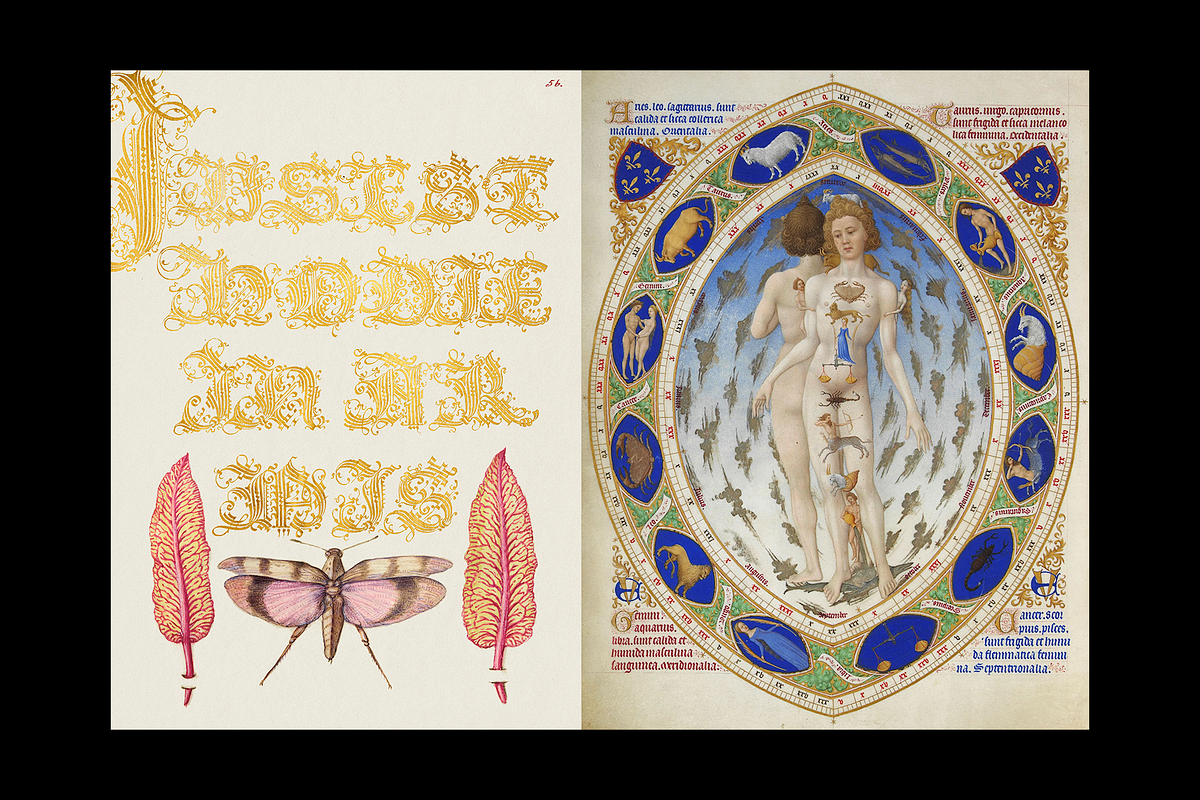 56.
INSECT
HODIE
IN AR
VIS
Aries. leo. sagittarius. sunt
calida et sicca collerica
masculina. Orientalia.
Taurus. virgo. capricornus.
sunt frigida et sicca melanco
lica feminina. Occidentalia.
Gemini.
aquarius.
libra. sunt calida et
humida masculina
sanguinea. meridionalia.
Cancer. scor
pius. pisces.
sunt frigida et humi
da flemmatica femini
na. Septentrionalia.
Aries
Taurus.
Gemini.
Cancer.
leo.
virgo.
libra
Scorpius
Sagittarius
Capricornus
Aquarius
september
augustus
october
november
december